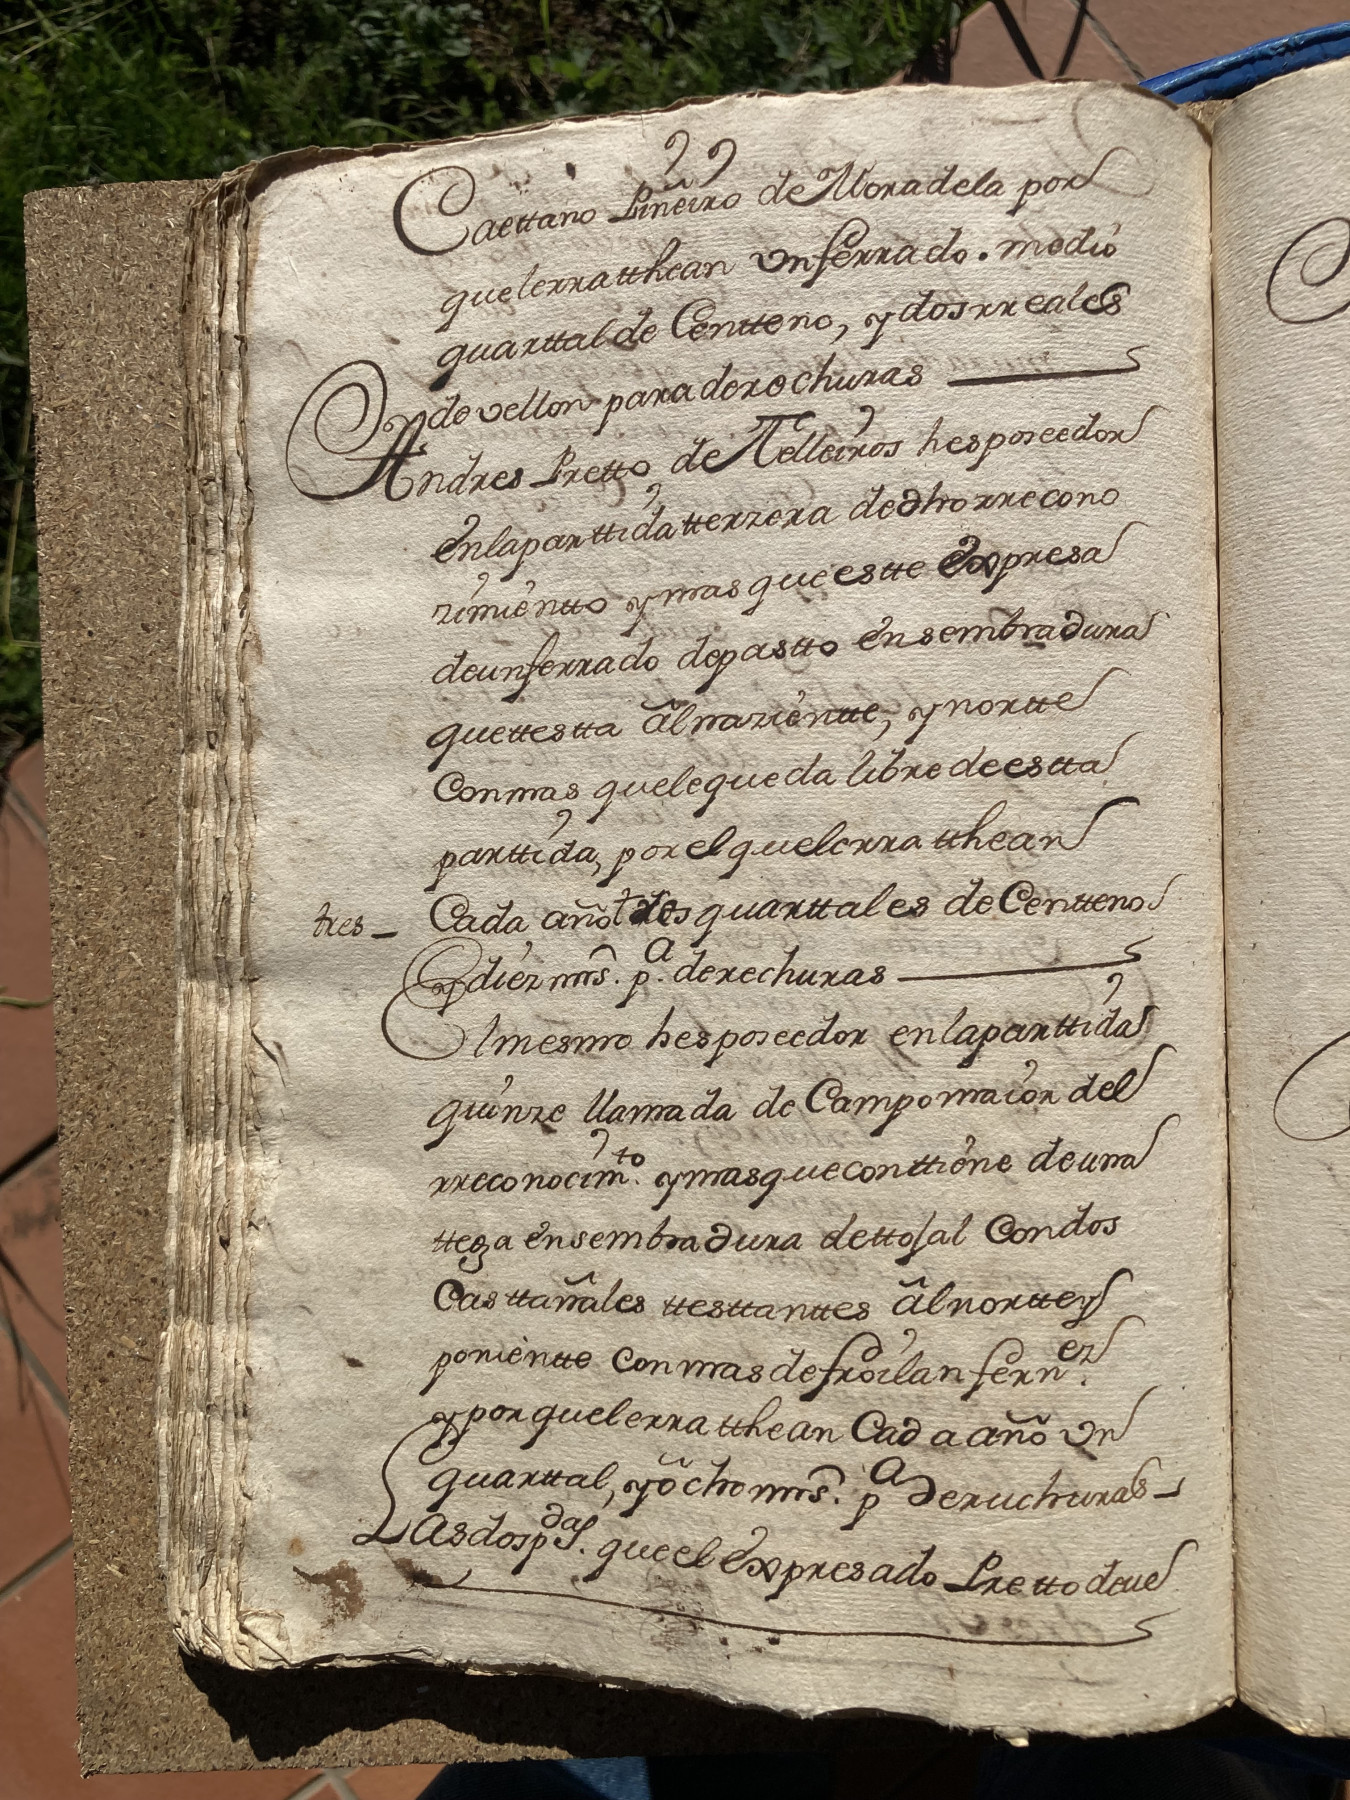 Caettano Piñeiro de Moradela por
que lerratthean Un ferrado. medio
quarttal de Centteno, y dos rreales
de vellon para derechuras
Andres Pretto de Telleiros hes poseedor
en la parttida tterzera de dho rrecono
zimientto y mas que estte Expresa
de un ferrado de pastto en sembradura
que ttestta âl naziente, y nortte
Con mas que le queda libre de estta
parttida, por el que lerratthean
tres Cada año tres quarttales de Centteno
y diez mrs. pa. derechuras
El mesmo hes poseedor en la parttida
quinze llamada de Campo maior del
rreconocimto. y mas que conttiene de una
ttega en sembradura de ttojal Con dos
Casttañales ttesttanttes âl nortte y
ponientte Con mas de froilan fernez.
y por que lerratthean Cada año Un
quarttal, y ôcho mrs. pa derechuras
Las dos pdas. que el Expresado Pretto deue